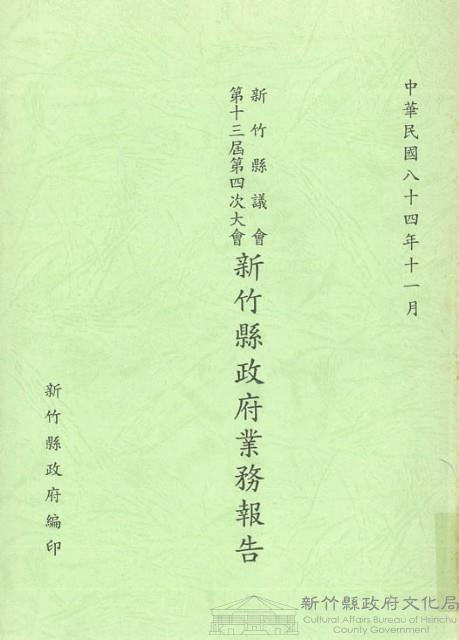 中華民國八十四年十一月
新竹縣議會
第十三屆第四次大會
新竹縣政府業務報告
新竹縣政府編印
新竹縣政府文化局
Cultural Affairs Bureau of Hsinchu
County Government